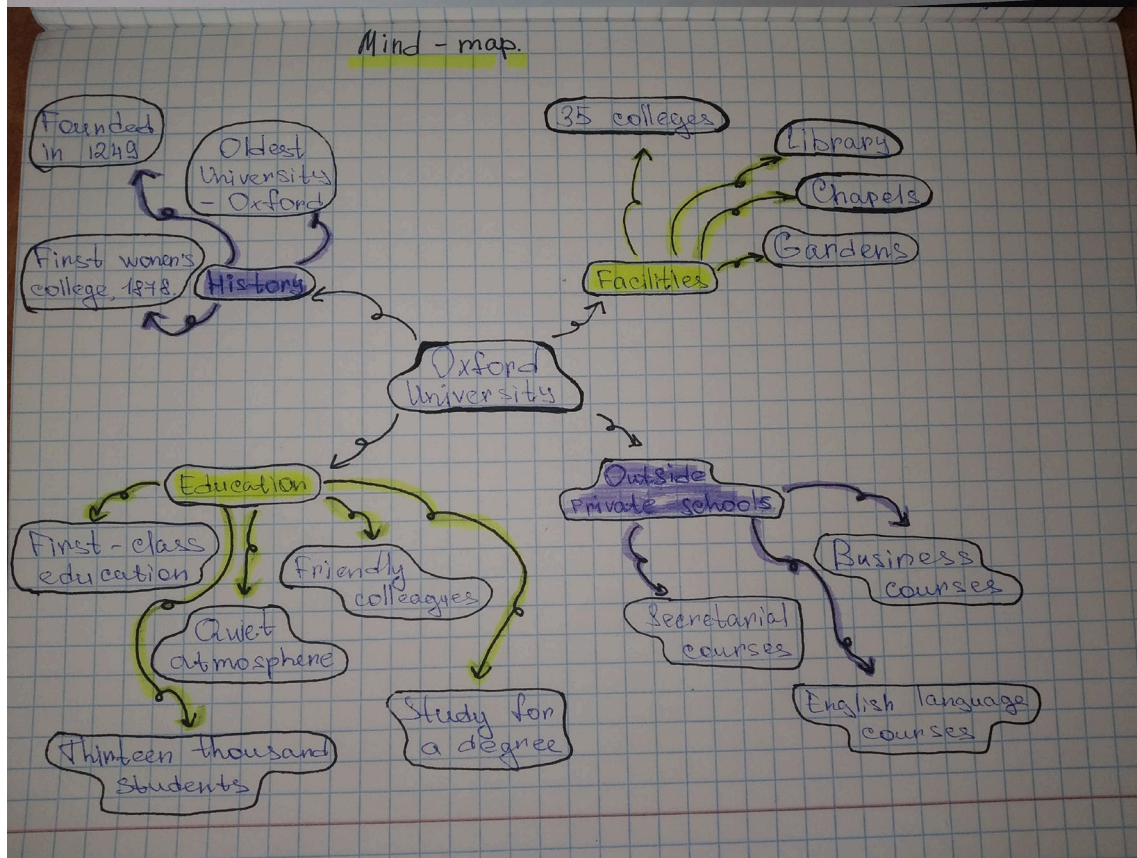 Mind - map.
Founded
in 1249
Oldest
University
- Oxford
First women's
college, 1878
History
35 colleges
Library
Chapels
Gardens
Facilities
Oxford
University
Education
First - class
education
Quiet
atmosphere
Friendly
colleagues
Thirteen thousand
students
Study for
a degree
Outside
private schools
Business
courses
Secretarial
courses
English language
courses